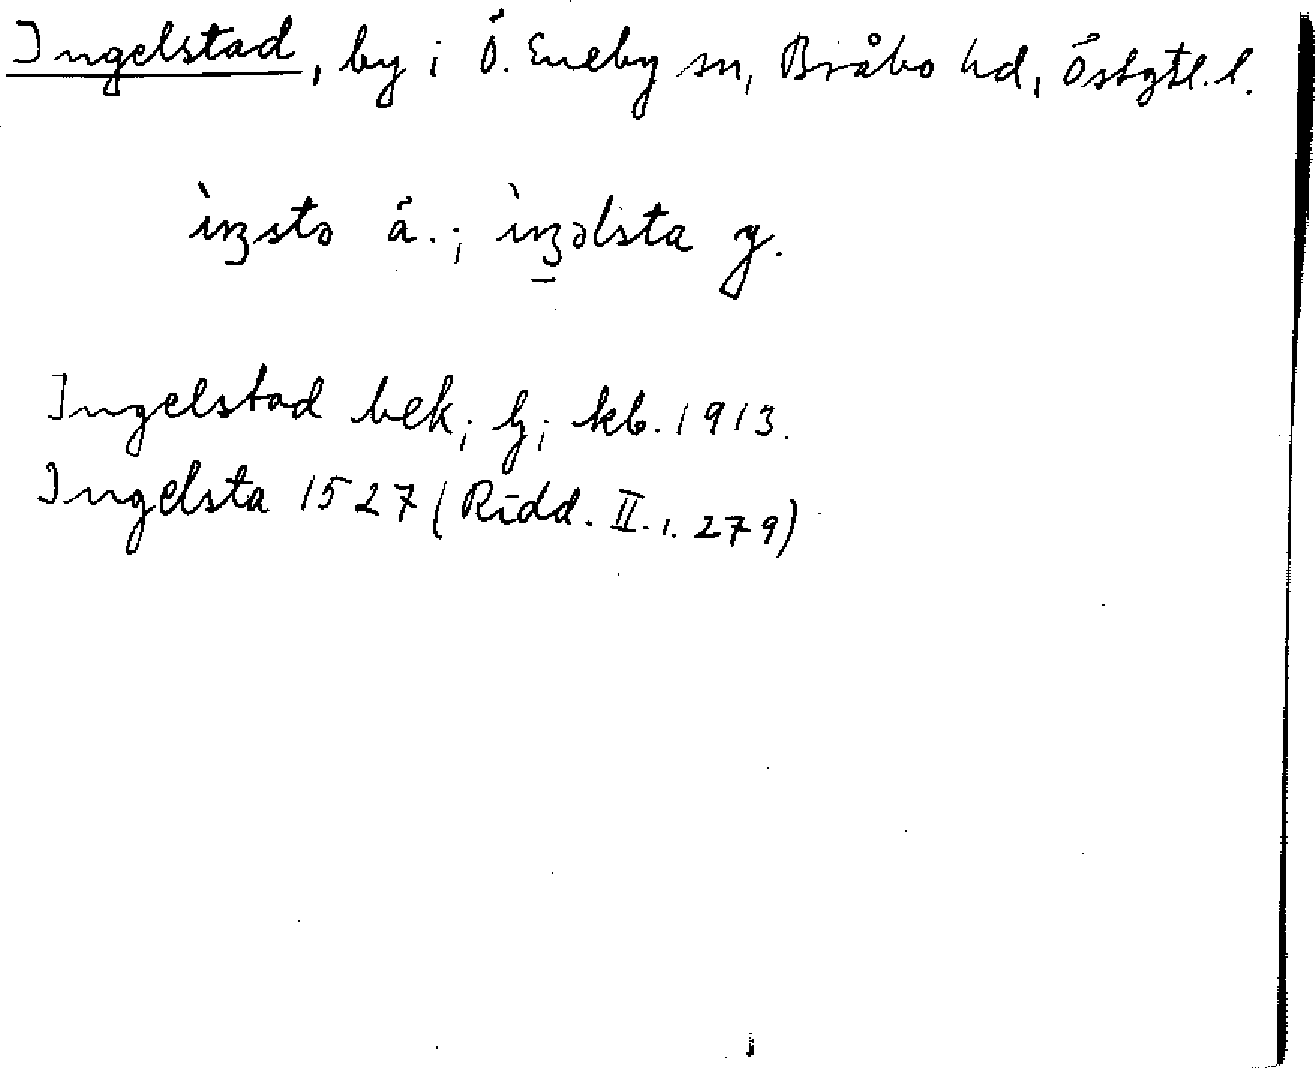 Ingelstad, by i Ö. Eneby sn, Bråbo hd, Östgtl. l.
ìŋsta ä.; ìŋəlsta y.
Ingelstad bek; hj; kb. 1913.
Ingelsta 1527 (Ridd. II. 1. 279)